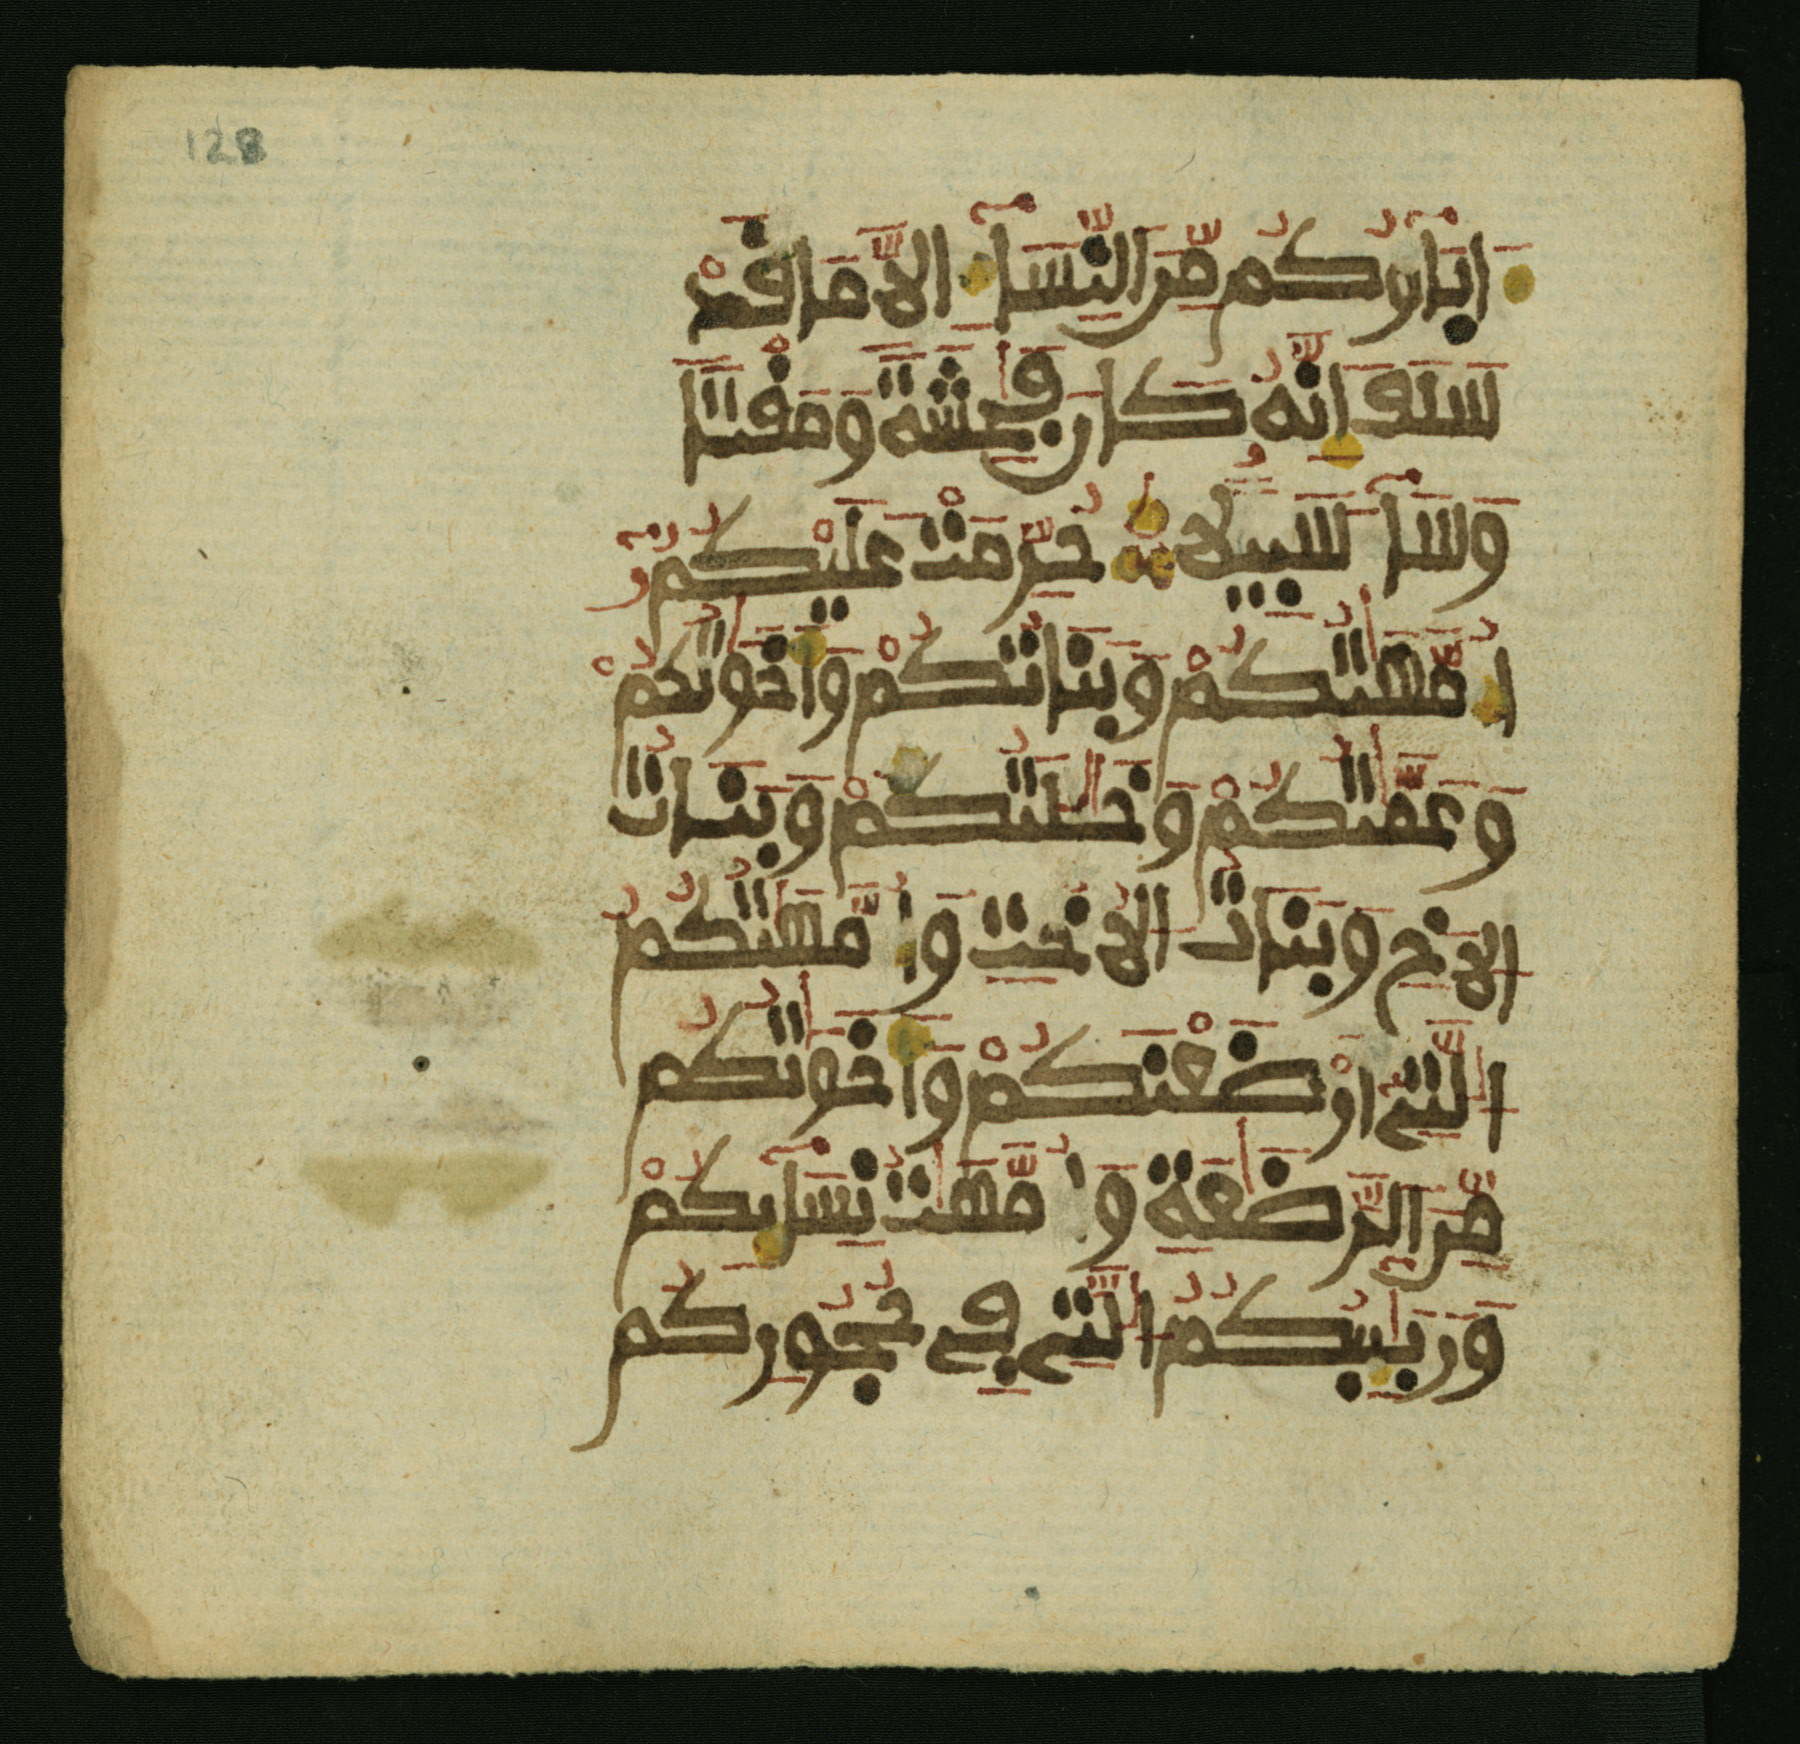 128
ءَابَآؤُكُم مِّنَ النِّسَآءِ الَّا مَا قَدْ
سَلَفَ إِنَّهُ كَانَ فَٰحِشَةً وَمَقْتًا
وَسَآءَ سَبِيلًا حُرِّمَتْ عَلَيْكُمُ
أُمَّهَٰتُكُمْ وَبَنَاتُكُمْ وَأَخَوَٰتُكُمْ
وَعَمَّٰتُكُمْ وَخَٰلَٰتُكُمْ وَبَنَاتُ
الَاخِ وَبَنَاتُ الُاخْتِ وَأُمَّهَٰتُكُمُ
الَّٰتِےٓ أَرْضَعْنَكُمْ وَأَخَوَٰتُكُم
مِّنَ الرَّضَٰعَةِ وَأُمَّهَٰتُ نِسَآئِكُمْ
وَرَبَٰٓئِبُكُمُ الَّٰتِے فِے حُجُورِكُم